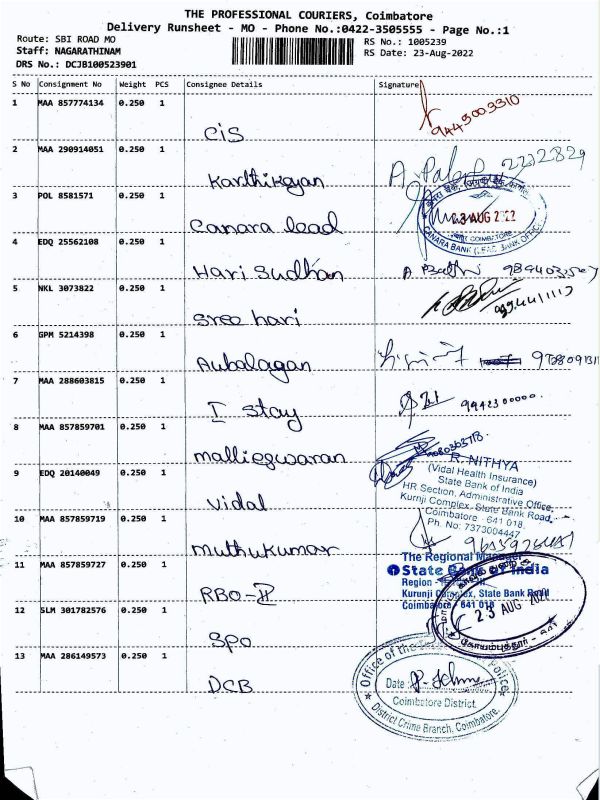 THE PROFESSIONAL COURIERS, Coimbatore
Delivery Runsheet - MO - Phone No.:0422-3505555 - Page No.:1
Route: SBI ROAD MO
RS No.: 1005239
Staff: NAGARATHINAM
RS Date: 23-Aug-2022
DRS No.: DCJB100523901
S No Consignment No Weight PCS Consignee Details Signature
1 MAA 857774134 0.250 1
CIS 9445003310
2 MAA 290914051 0.250 1
Karthikeyan 2212829
3 POL 8581571 0.250 1
Canara lead
23 AUG 2022
COIMBATORE
4 EDQ 25562108 0.250 1
Hari Sudhan
5 NKL 3073822 0.250 1
Sree hari
6 GPM 5214398 0.250 1
Aubalagan
7 MAA 288603815 0.250 1
I stay 9942300000
8 MAA 857859701 0.250 1
malliegwaran
R. NITHYA
(Vidal Health Insurance)
State Bank of India
HR Section, Administrative Office,
Kurnji Complex, State Bank Road,
Coimbatore - 641 018.
Ph. No: 7373004447
9 EDQ 20140049 0.250 1
Vidal
10 MAA 857859719 0.250 1
Muthukumar
The Regional Manager
State Bank of India
Region -
Kurunji Complex, State Bank Road
Coimbatore - 641 018
23 AUG
11 MAA 857859727 0.250 1
RBO-II
12 SLM 301782576 0.250 1
SPO
13 MAA 286149573 0.250 1
DCB
Office of the Police
Date :
Coimbatore District.
District Crime Branch, Coimbatore.